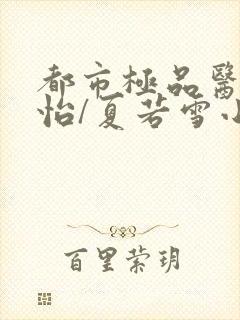 都市極品醫
怡/夏若雪小
百里縈玥